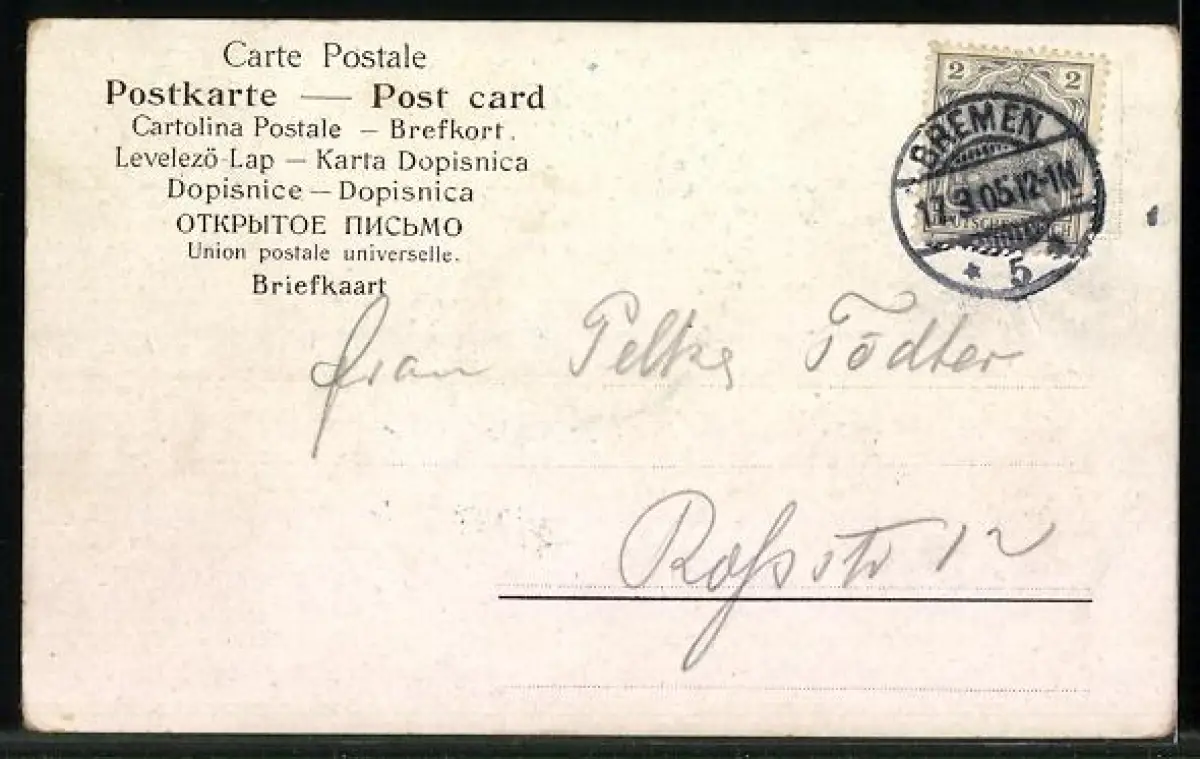 Carte Postale
Postkarte — Post card
Cartolina Postale – Brefkort.
Levelező-Lap – Karta Dopisnica
Dopisnice – Dopisnica
ОТКРЫТОЕ ПИСЬМО
Union postale universelle.
Briefkaart
2 2
BREMEN
9.05.12-1N
DEUTSCHES REICH
* 5 *
Frau Tödter
Roßstr 12